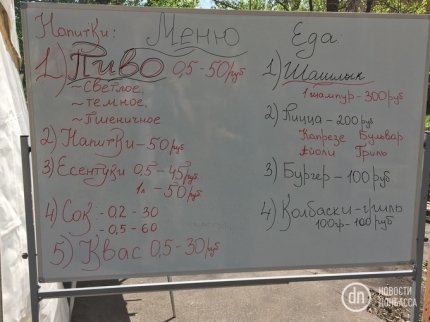 Меню
Напитки:
1) Пиво 0,5-50руб
~Светлое,
~темное,
~Пшеничное
2) Напитки-50руб
3) Есентуки 0,5-45руб
1л-50руб
4) Сок -0,2-30
-0,5-60
5) Квас 0,5-30руб
Еда:
1) Шашлык
1 шампур-300руб
2) Пицца-200руб
Капрезе Бульвар
Айоли Гриль
3) Бургер-100руб
4) Колбаски-гриль
100гр-100руб
dn НОВОСТИ
ДОНБАССА